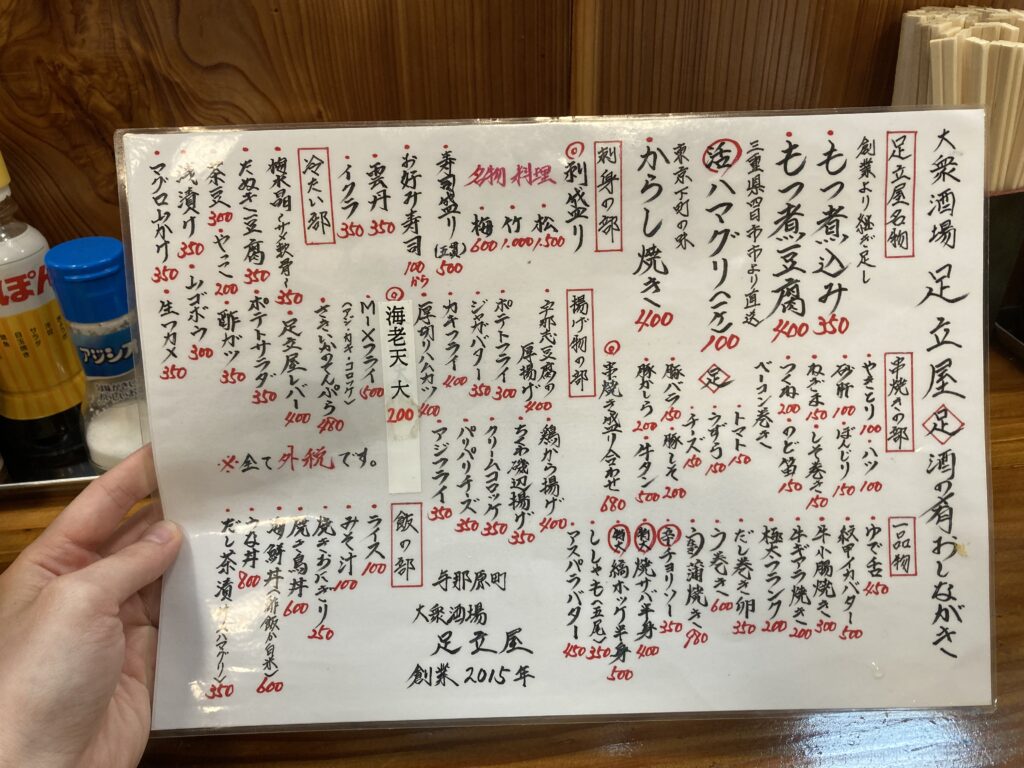 大衆酒場 足立屋 足 酒の肴おしながき
足立屋名物
創業より継ぎ足し
・もつ煮込み 350
・もつ煮豆腐 400
三重県四日市市より直送
活ハマグリ(一ケ) 100
東京下町の味
・からし焼き 400
刺身の部
◎刺盛り
・松 1.500
・竹 1.000
・梅 600
名物料理
・寿司盛り(五貫) 500
・お好み寿司 100から
・雲丹 350
・イクラ 350
冷たい部
・梅水晶 350
・たぬき豆腐 350
・茶豆 300
・やっこ 200
・浅漬け 350
・山ゴボウ 300
・マグロ山かけ 350
・生ワカメ 350
・酢ガツ 350
・ポテトサラダ 350
串焼きの部
・やきとり 100
・ハツ 100
・砂肝 100
・ぼんじり 150
・ねぎま 150
・しそ巻き 150
・つくね 200
・のど笛 150
ベーコン巻き
・トマト 150
・うずら 150
・チーズ 150
足
・豚バラ 150
・豚しそ 200
・豚かしら 200
・牛タン 500
◎串焼き盛り合わせ 680
揚げ物の部
・与那茂豆腐の厚揚げ 400
・鶏から揚げ 400
・ポテトフライ 300
・ちくわ磯辺揚げ 350
・ジャガバター 350
・クリームコロッケ 350
・カキフライ 400
・パリパリチーズ 350
・厚切りハムカツ 400
・アジフライ 350
◎海老天 大 200
・MIXフライ 500
(アジ・カキ・コロッケ)
・さきいかのてんぷら 480
・足立屋レバー 400
※全て外税です。
一品物
・ゆで舌 450
・紋甲イカバター 500
・牛小腸焼き 300
・牛ギアラ焼き 200
・極太フランク 200
・だし巻き卵 350
・う巻き 600
・蒲焼き 980
チョリソー 350
特大焼サバ半身 400
特大縞ホッケ半身 500
・ししゃも(五尾) 350
・アスパラバター 450
飯の部
・ライス 100
・みそ汁 100
・焼きおにぎり 250
・焼き鳥丼 600
・海鮮丼(酢飯か白米) 600
・うな丼 800
・だし茶漬け 350
与那原町
大衆酒場
足立屋
創業2015年
アツシオ